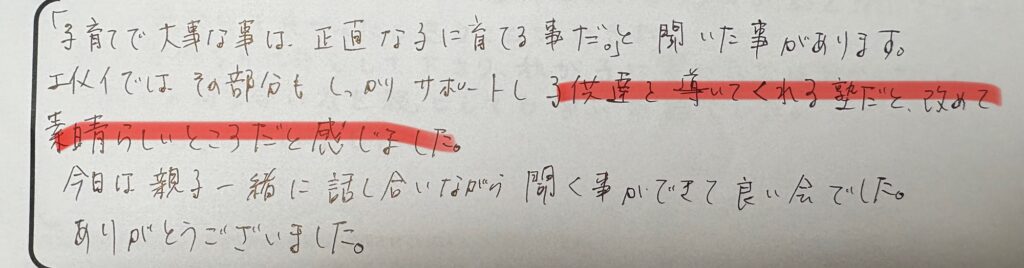 「子育てで大事な事は、正直な子に育てる事だ。」と聞いた事があります。
エイメイではその部分もしっかりサポートし子供達を導いてくれる塾だと、改めて
素晴らしいところだと感じました。
今日は親子一緒に話し合いながら聞く事ができて良い会でした。
ありがとうございました。